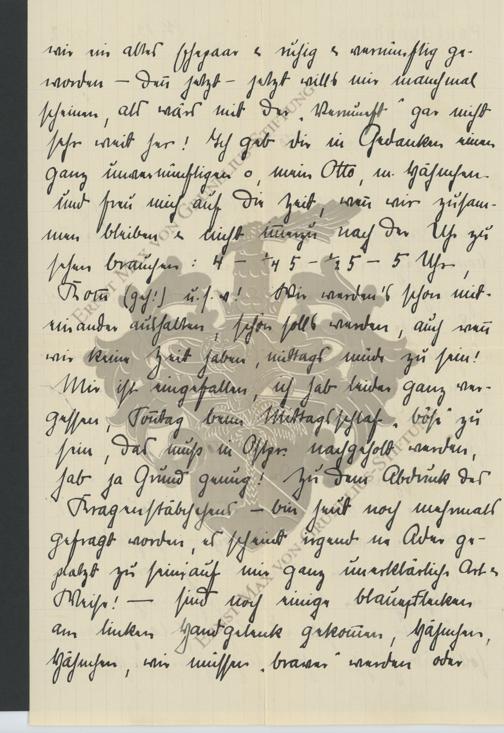 wir ein altes Ehepaar & ruhig & vernünftig ge-
worden – denn jetzt – jetzt wills mir manchmal
scheinen, als wärs mit der „Vernunft“ gar nicht
sehr weit her! Ich geb dir in Gedanken einen
ganz unvernünftigen o, mein Otto, m. Hähnchen
und freu mich auf die Zeit, wenn wir zusam-
men bleiben & nicht immerzu nach der Uhr zu
sehen brauchen: 4 – ¼ 5 – ½ 5 – 5 Uhr,
Komm (geh!) u.s.w! Wir werden's schon mit-
einander aushalten, schön solls werden, auch wenn
wir keine Zeit haben, mittags müde zu sein!
Mir ist eingefallen, ich hab leider ganz ver-
gessen, Sonntag beim Mittagsschlaf „böse“ zu
sein, das muß in Ostpr. nachgeholt werden,
hab ja Grund genug! Zu dem Abdruck des
Kragenstäbchens – bin heut noch mehrmals
gefragt worden, es scheint irgend ne Ader ge-
platzt zu sein, auf mir ganz unerklärliche Art &
Weise! – sind noch einige blaue Flecken
am linken Handgelenk gekommen, Hähnchen,
Hähnchen, wir müssen „braver“ werden oder
ERNST MAX VON GRUNELIUS-STIFTUNG
ERNST MAX VON GRUNELIUS-STIFTUNG